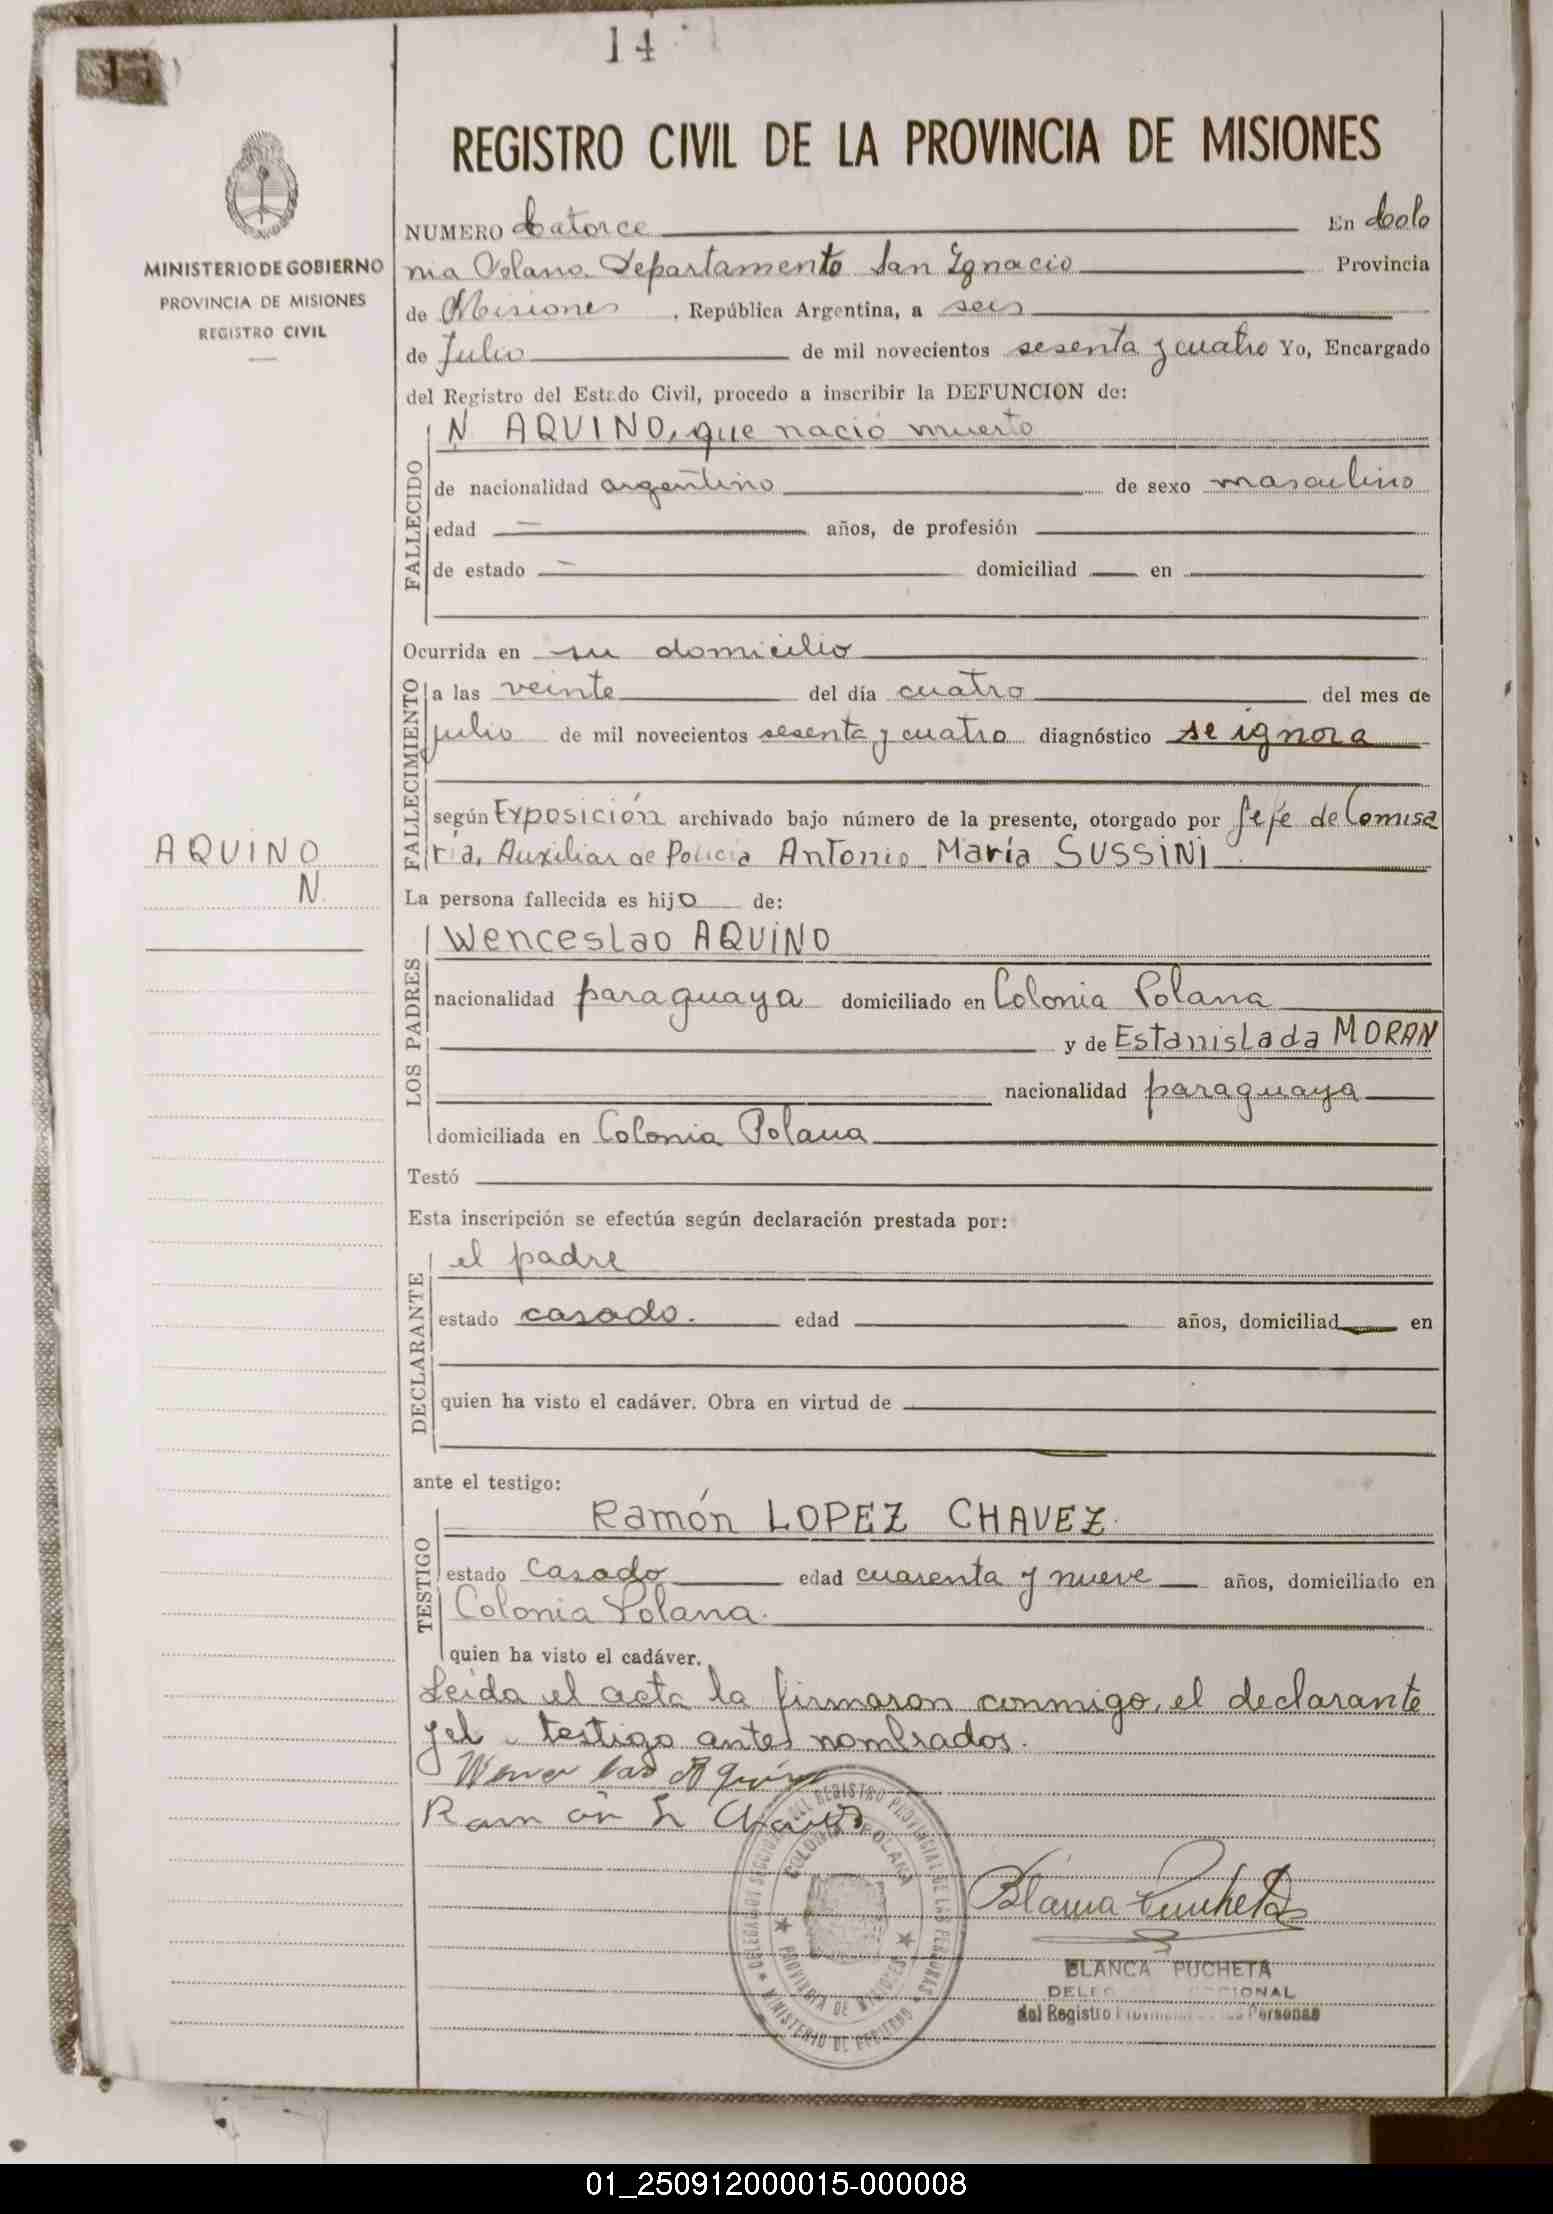 14
REGISTRO CIVIL DE LA PROVINCIA DE MISIONES
MINISTERIO DE GOBIERNO
PROVINCIA DE MISIONES
REGISTRO CIVIL
NUMERO Catorce En Colo
nia Polana Departamento San Ignacio Provincia
de Misiones, República Argentina, a seis
de Julio de mil novecientos sesenta y cuatro Yo, Encargado
del Registro del Estado Civil, procedo a inscribir la DEFUNCION de:
FALLECIDO
N AQUINO, que nació muerto
de nacionalidad argentino de sexo masculino
edad — años, de profesión
de estado — domiciliad — en
Ocurrida en su domicilio
FALLECIMIENTO
a las veinte del día cuatro del mes de
julio de mil novecientos sesenta y cuatro diagnóstico se ignora
según Exposición archivado bajo número de la presente, otorgado por Jefe de Comisa
ría, Auxiliar de Policia Antonio María SUSSINI
AQUINO
N.
La persona fallecida es hijo de:
LOS PADRES
Wenceslao AQUINO
nacionalidad paraguaya domiciliado en Colonia Polana
y de Estanislada MORAN
nacionalidad paraguaya
domiciliada en Colonia Polana
Testó
Esta inscripción se efectúa según declaración prestada por:
DECLARANTE
el padre
estado casado. edad años, domiciliad en
quien ha visto el cadáver. Obra en virtud de
ante el testigo:
TESTIGO
Ramón LOPEZ CHAVEZ.
estado casado edad cuarenta y nueve años, domiciliado en
Colonia Polana.
quien ha visto el cadáver.
Leida el acta la firmaron conmigo, el declarante
y el testigo antes nombrados.
Wenceslao Aquino
Ramón L Chavez
COLONIA POLANA
PROVINCIA DE MISIONES
MINISTERIO DE GOBIERNO
Blanca Pucheta
BLANCA PUCHETA
del Registro Personas
01_250912000015-000008